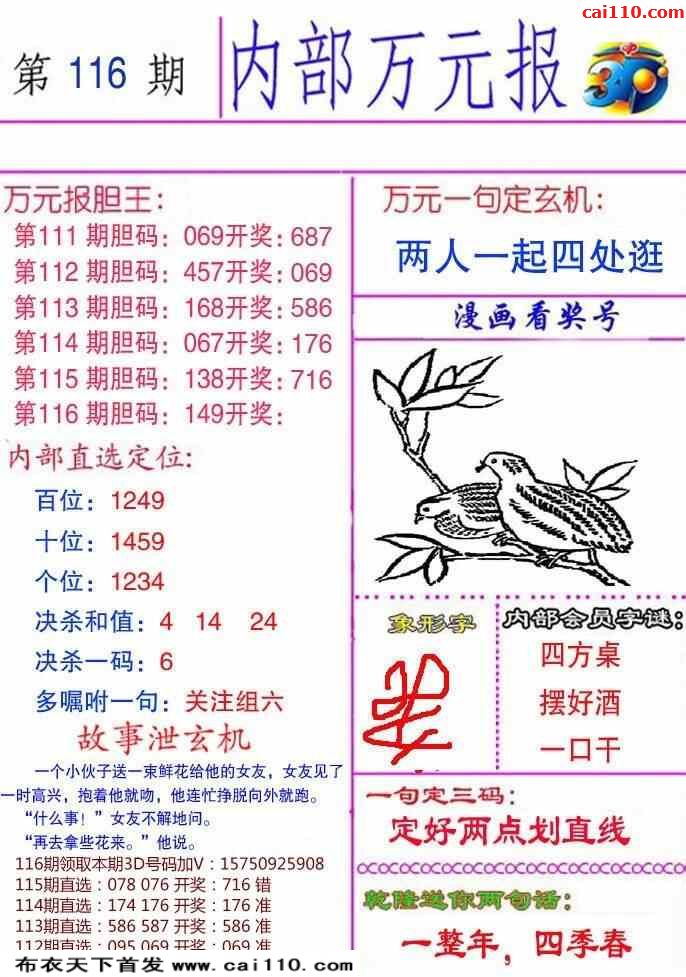 cai110.com
第 116 期
内部万元报
3D
万元报胆王：
第111 期胆码：069开奖：687
第112 期胆码：457开奖：069
第113 期胆码：168开奖：586
第114 期胆码：067开奖：176
第115 期胆码：138开奖：716
第116 期胆码：149开奖：
内部直选定位：
百位：1249
十位：1459
个位：1234
决杀和值：4 14 24
决杀一码：6
多嘱咐一句：关注组六
故事泄玄机
一个小伙子送一束鲜花给他的女友，女友见了
一时高兴，抱着他就吻，他连忙挣脱向外就跑。
“什么事！”女友不解地问。
“再去拿些花来。”他说。
116期领取本期3D号码加V：15750925908
115期直选：078 076 开奖：716 错
114期直选：174 176 开奖：176 准
113期直选：586 587 开奖：586 准
112期直选：095 069 开奖：069 准
万元一句定玄机：
两人一起四处逛
漫画看奖号
象形字
内部会员字谜：
四方桌
摆好酒
一口干
一句定三码：
定好两点划直线
乾隆送你两句话：
一整年，四季春
布衣天下首发 www.cai110.com